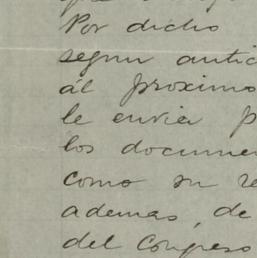 Por dicho
segun antic
al proximo
le envia p
los documen
como su re
ademas, de
del Congreso